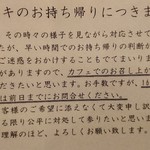 キのお持ち帰りにつきま
その時々の様子を見ながら対応させて
が、早い時間でのお持ち帰りの判断が
ご迷惑をおかけすることもでてまい
がありますので、カフェでのお召し上が
だきたいと思います。お手数ですが、16
は前日までにお問合せください。
客様のご希望に添えなくて大変申し訳
る限り公平に対処して参りたいと思いま
理解のほど、よろしくお願い致します。